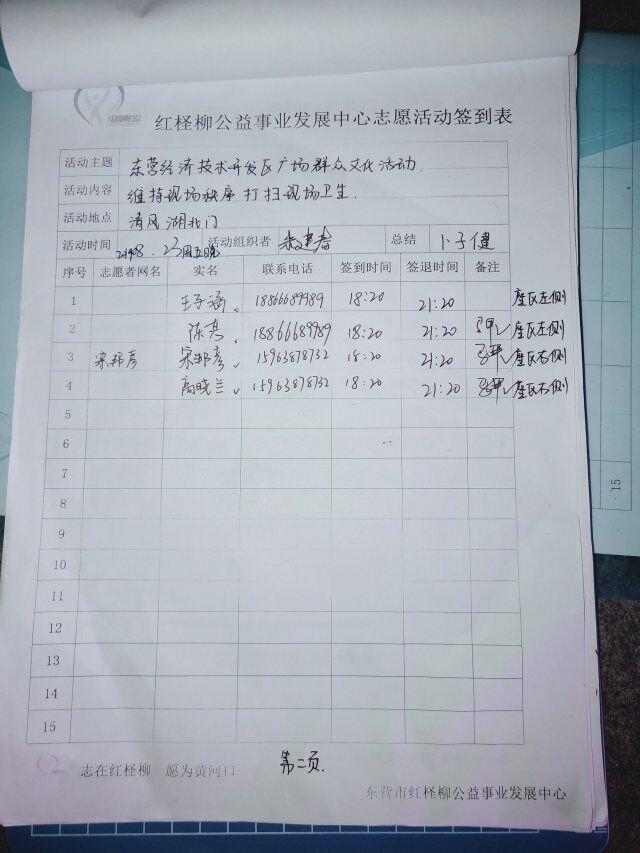 红柽柳公益事业发展中心志愿活动签到表
活动主题 东营经济技术开发区广场群众文化活动.
活动内容 维持现场秩序 打扫现场卫生.
活动地点 清风湖北门
活动时间 23周五晚 活动组织者 总结 卜子健
序号 志愿者网名 实名 联系电话 签到时间 签退时间 备注
1 王子涵 18866689989 18:20 21:20 座区左侧
2 陈其 18866689989 18:20 21:20 座区左侧
3 宋邦彦 宋邦彦 15963878732 18:20 21:20 座区右侧
4 高晓兰 15963878732 18:20 21:20 座区右侧
5
6
7
8
9
10
11
12
13
14
15
志在红柽柳 愿为黄河口 第二页.
东营市红柽柳公益事业发展中心
15